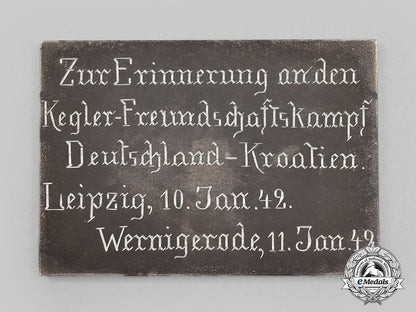 Zur Erinnerung an den
Kegler-Freundschaftskampf
Deutschland-Kroatien.
Leipzig, 10. Jan. 42.
Wernigerode, 11. Jan. 42
eMedals